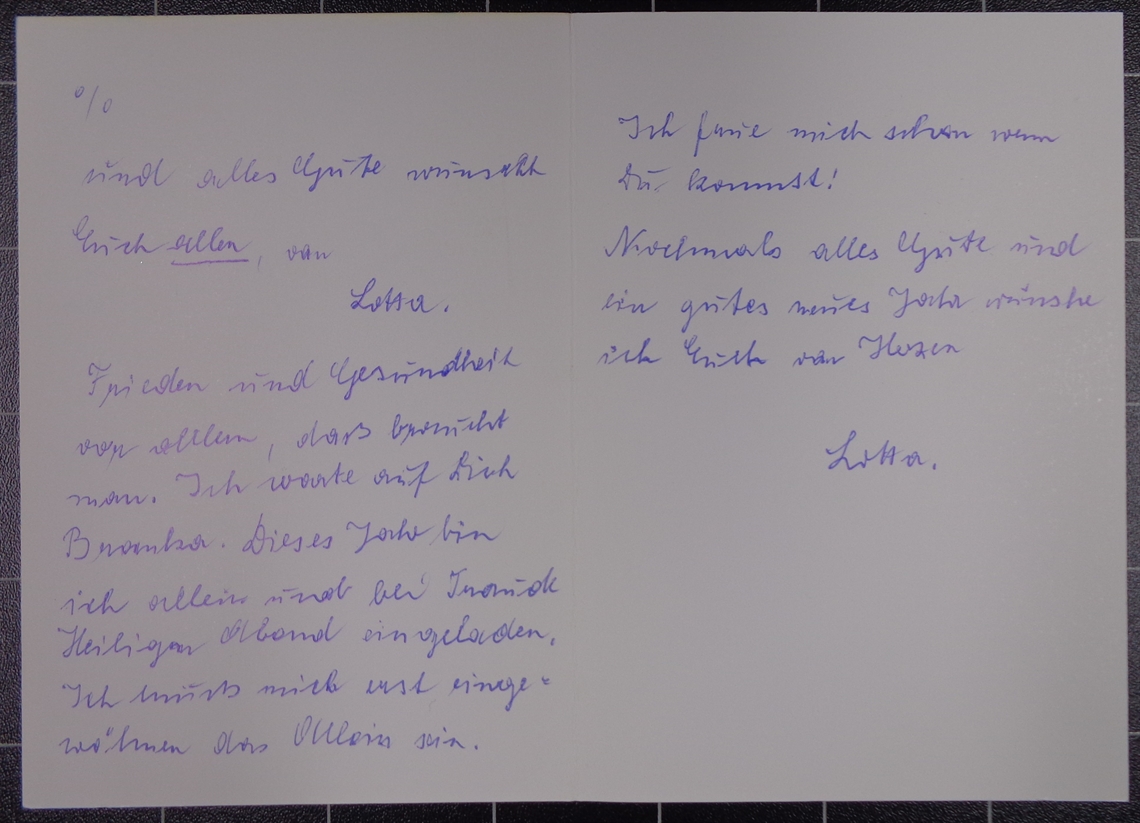 %
und alles Gute wünscht
Euch allen, von
Lotta.
Frieden und Gesundheit
vor allem, daß braucht
man. Ich warte auf Dich
Branka. Dieses Jahr bin
ich allein und bei Traude
Heiligen Abend eingeladen.
Ich muß mich erst einge-
wöhnen das Allein sein.
Ich freue mich schon wenn
Du kommst!
Nochmals alles Gute und
ein gutes neues Jahr wünsche
ich Euch von Herzen
Lotta.